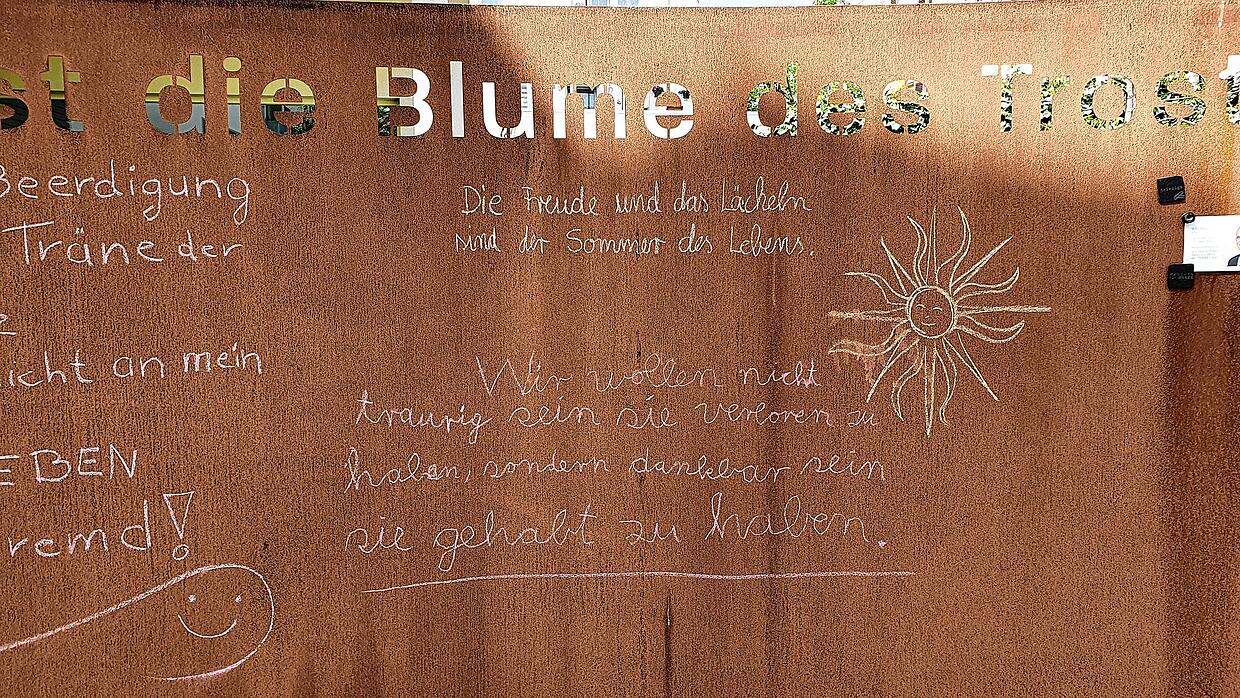 st die Blume des Trost
Beerdigung
Träne der
icht an mein
EBEN
remd!
Die Freude und das Lächeln
sind der Sommer des Lebens.
Wir wollen nicht
traurig sein sie verloren zu
haben, sondern dankbar sein
sie gehabt zu haben.